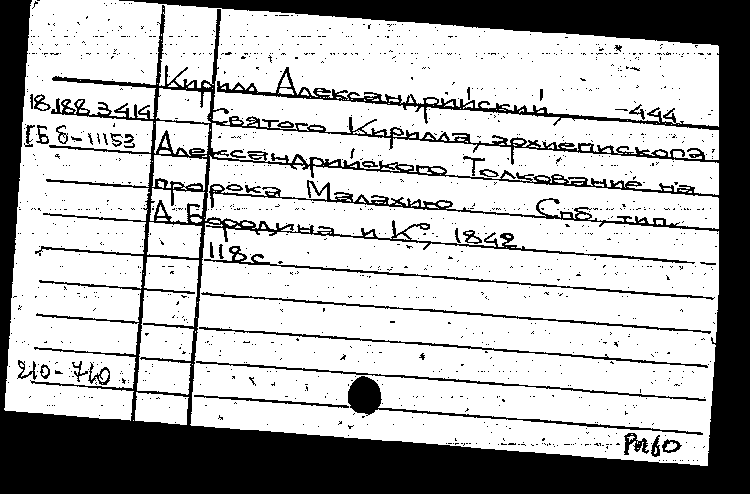 Кирилл Александрийский, -444.
18.188.3.414 Святого Кирилла, архиепископа
[Б 8-11153 Александрийского Толкование на
пророка Малахию. Спб., тип.
А. Бородина и К°, 1842.
118 с.
210-710